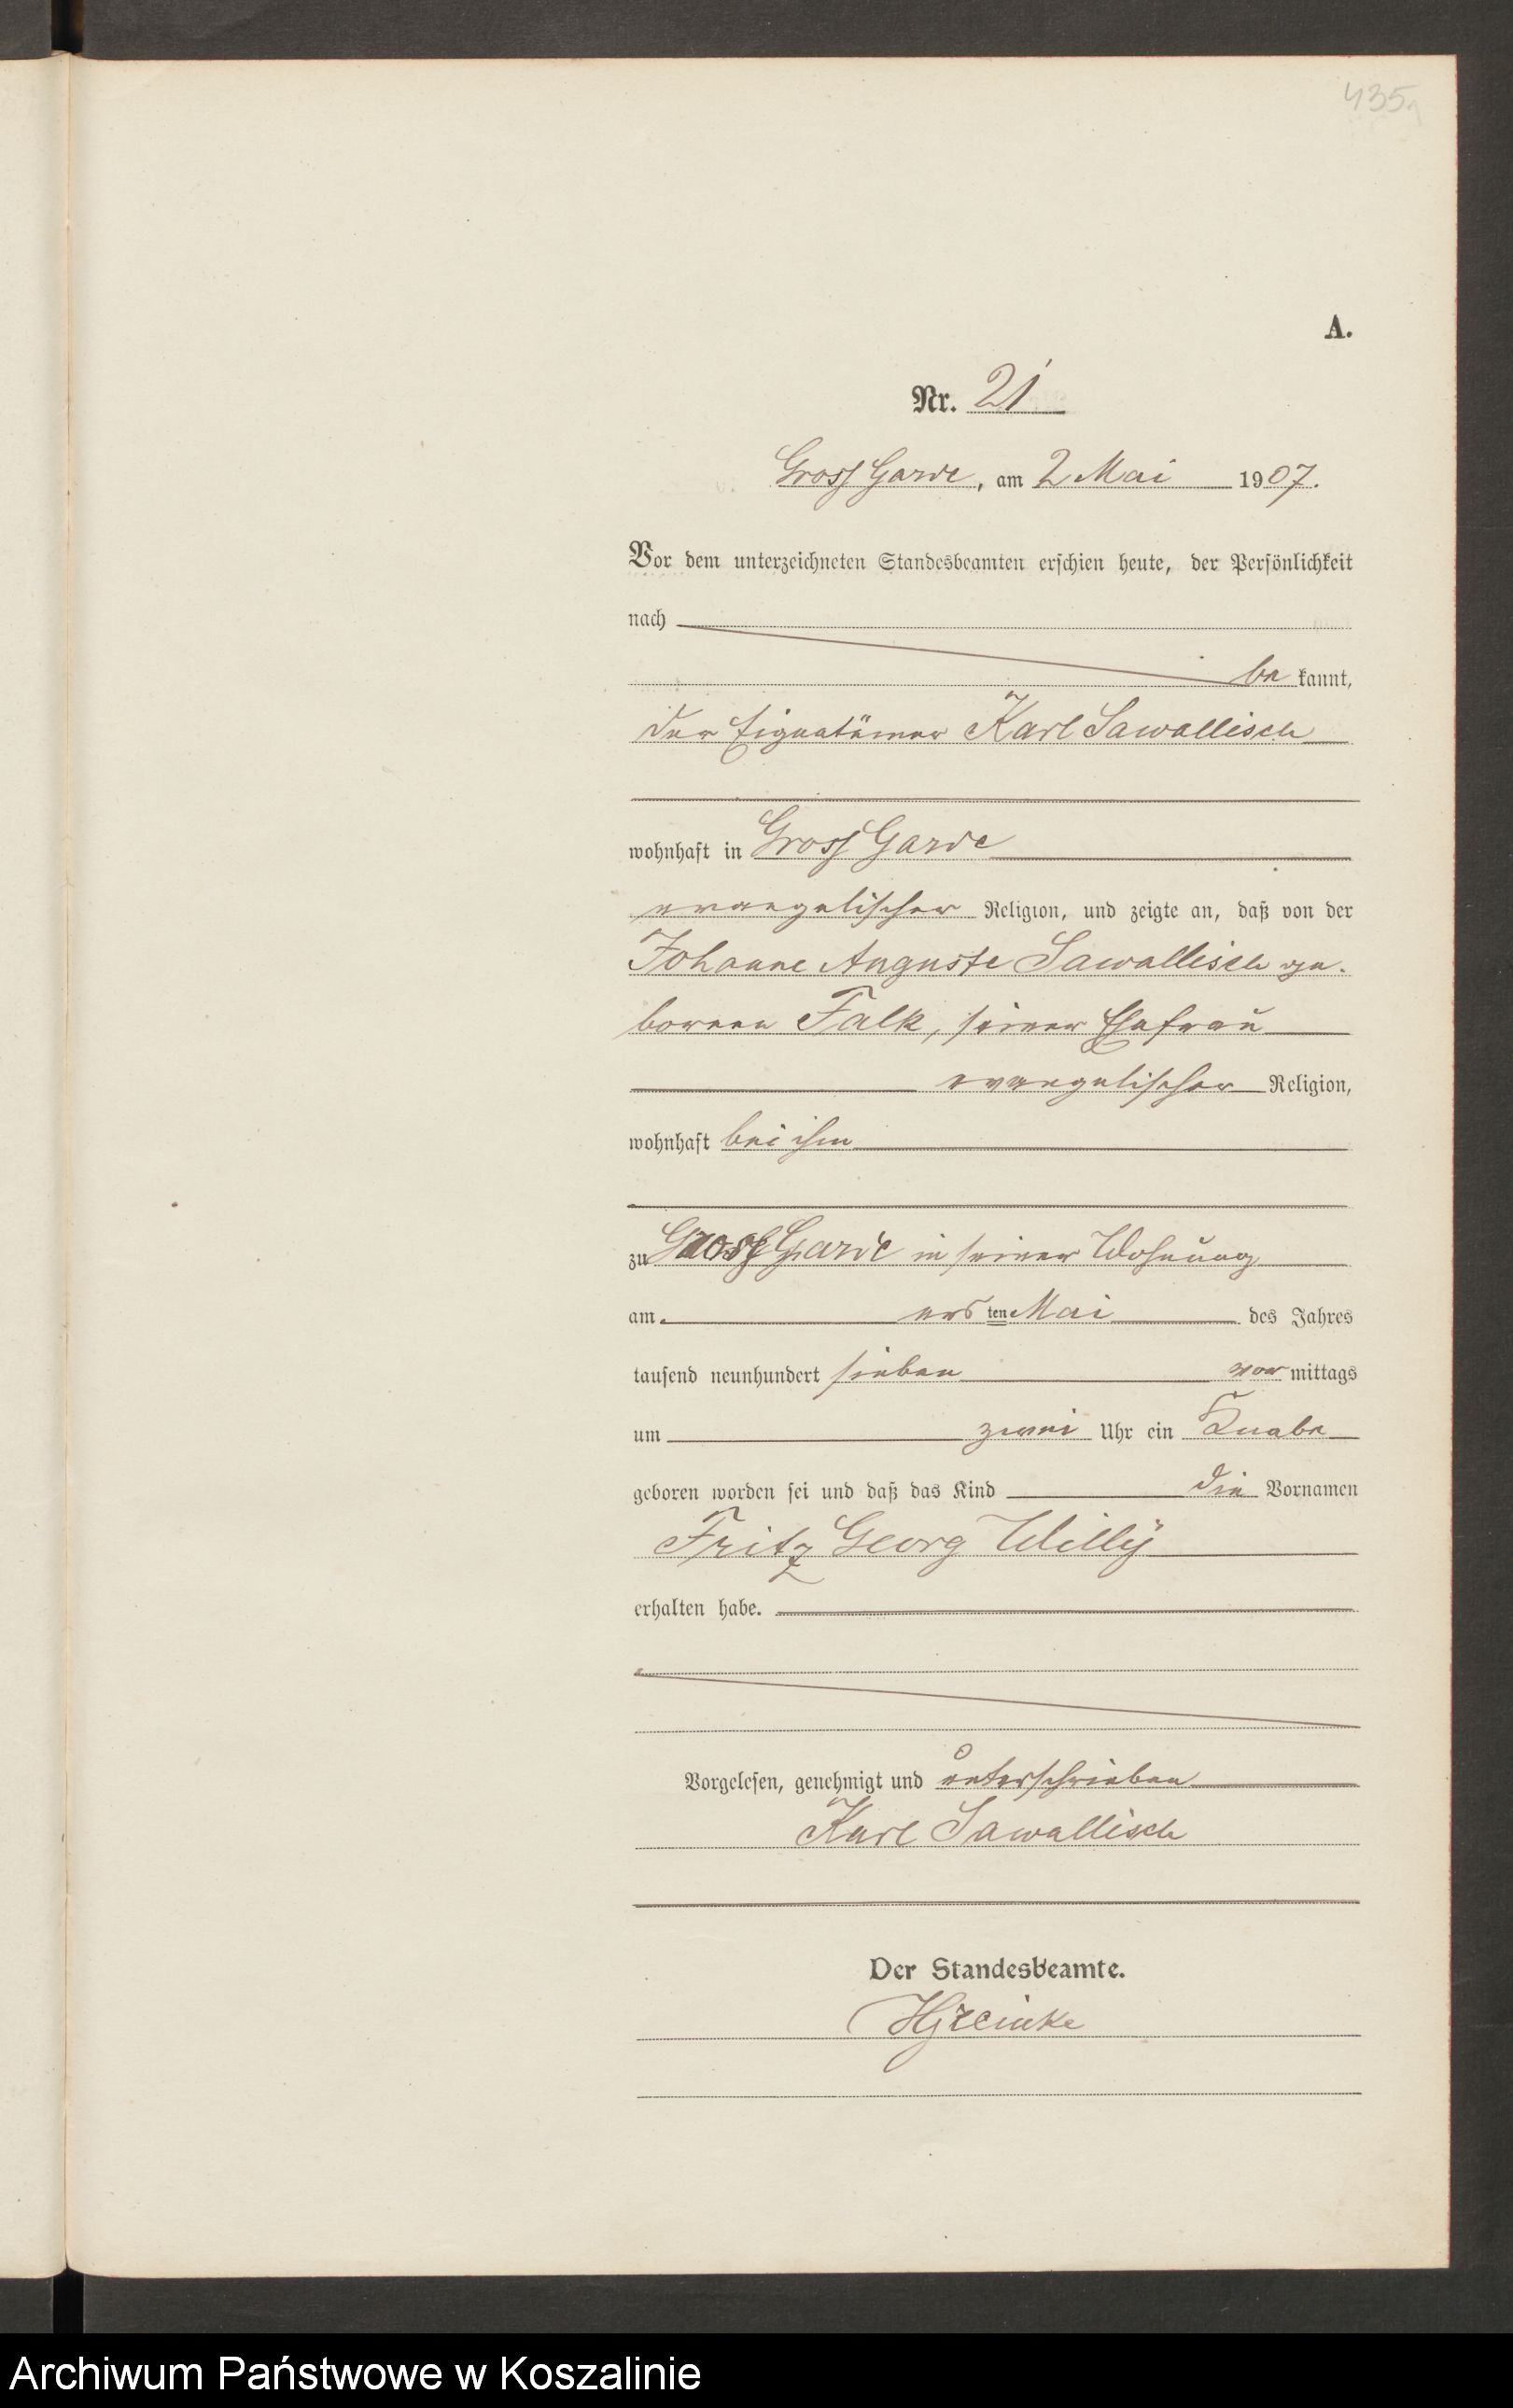 435
A.
Nr. 21
Gross Garde, am 2 Mai 1907.
Vor dem unterzeichneten Standesbeamten erschien heute, der Persönlichkeit
nach
be kannt,
der Eigentümer Karl Sawallisch
wohnhaft in Gross Garde
evangelischer Religion, und zeigte an, daß von der
Johanne Auguste Sawallisch ge-
borenen Falk, seiner Ehefrau
evangelischer Religion,
wohnhaft bei ihm
zu Gross Garde in seiner Wohnung
am ersten Mai des Jahres
tausend neunhundert sieben vor mittags
um zwei Uhr ein Knabe
geboren worden sei und daß das Kind die Vornamen
Fritz Georg Willy
erhalten habe.
Vorgelesen, genehmigt und unterschrieben
Karl Sawallisch
Der Standesbeamte.
Archiwum Państwowe w Koszalinie